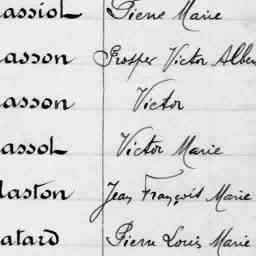 assiol Pierre Marie
asson Prosper Victor Alber
asson Victor
assol Victor Marie
laston Jean François Marie
atard Pierre Louis Marie